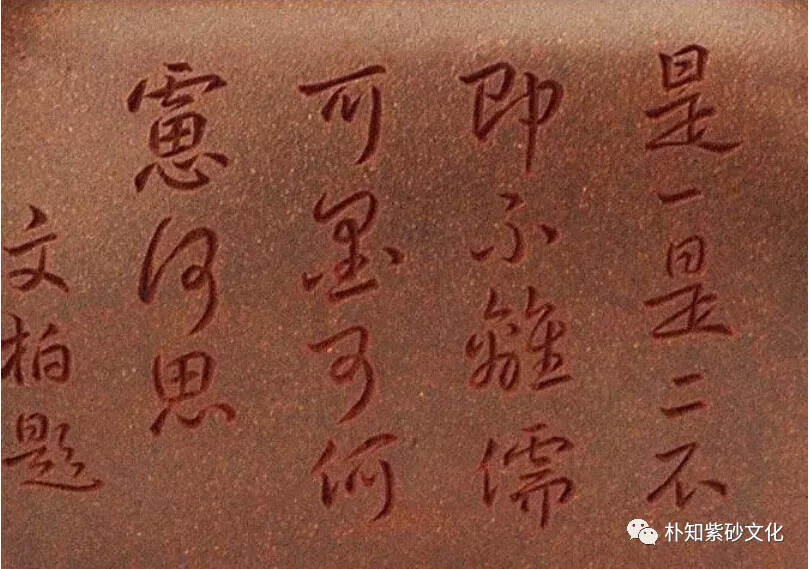 是一是二不
即不離儒
可墨可何
慮何思
文柏題
朴知紫砂文化